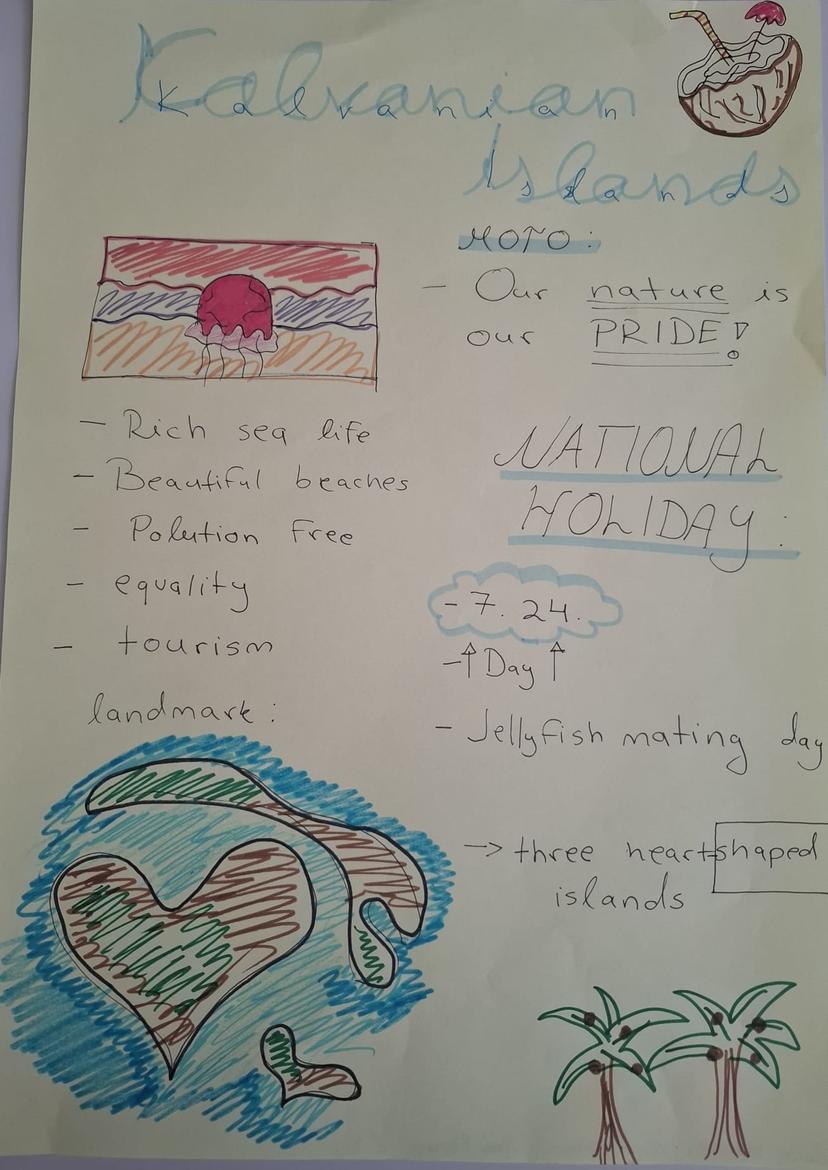 Kalvanian
Islands
MOTO:
- Our nature is
our PRIDE!
- Rich sea life
- Beautiful beaches
- Polution Free
- equality
- tourism
landmark:
NATIONAL
HOLIDAY:
- 7. 24.
-↑ Day ↑
- Jellyfish mating day
→ three heart-shaped
islands